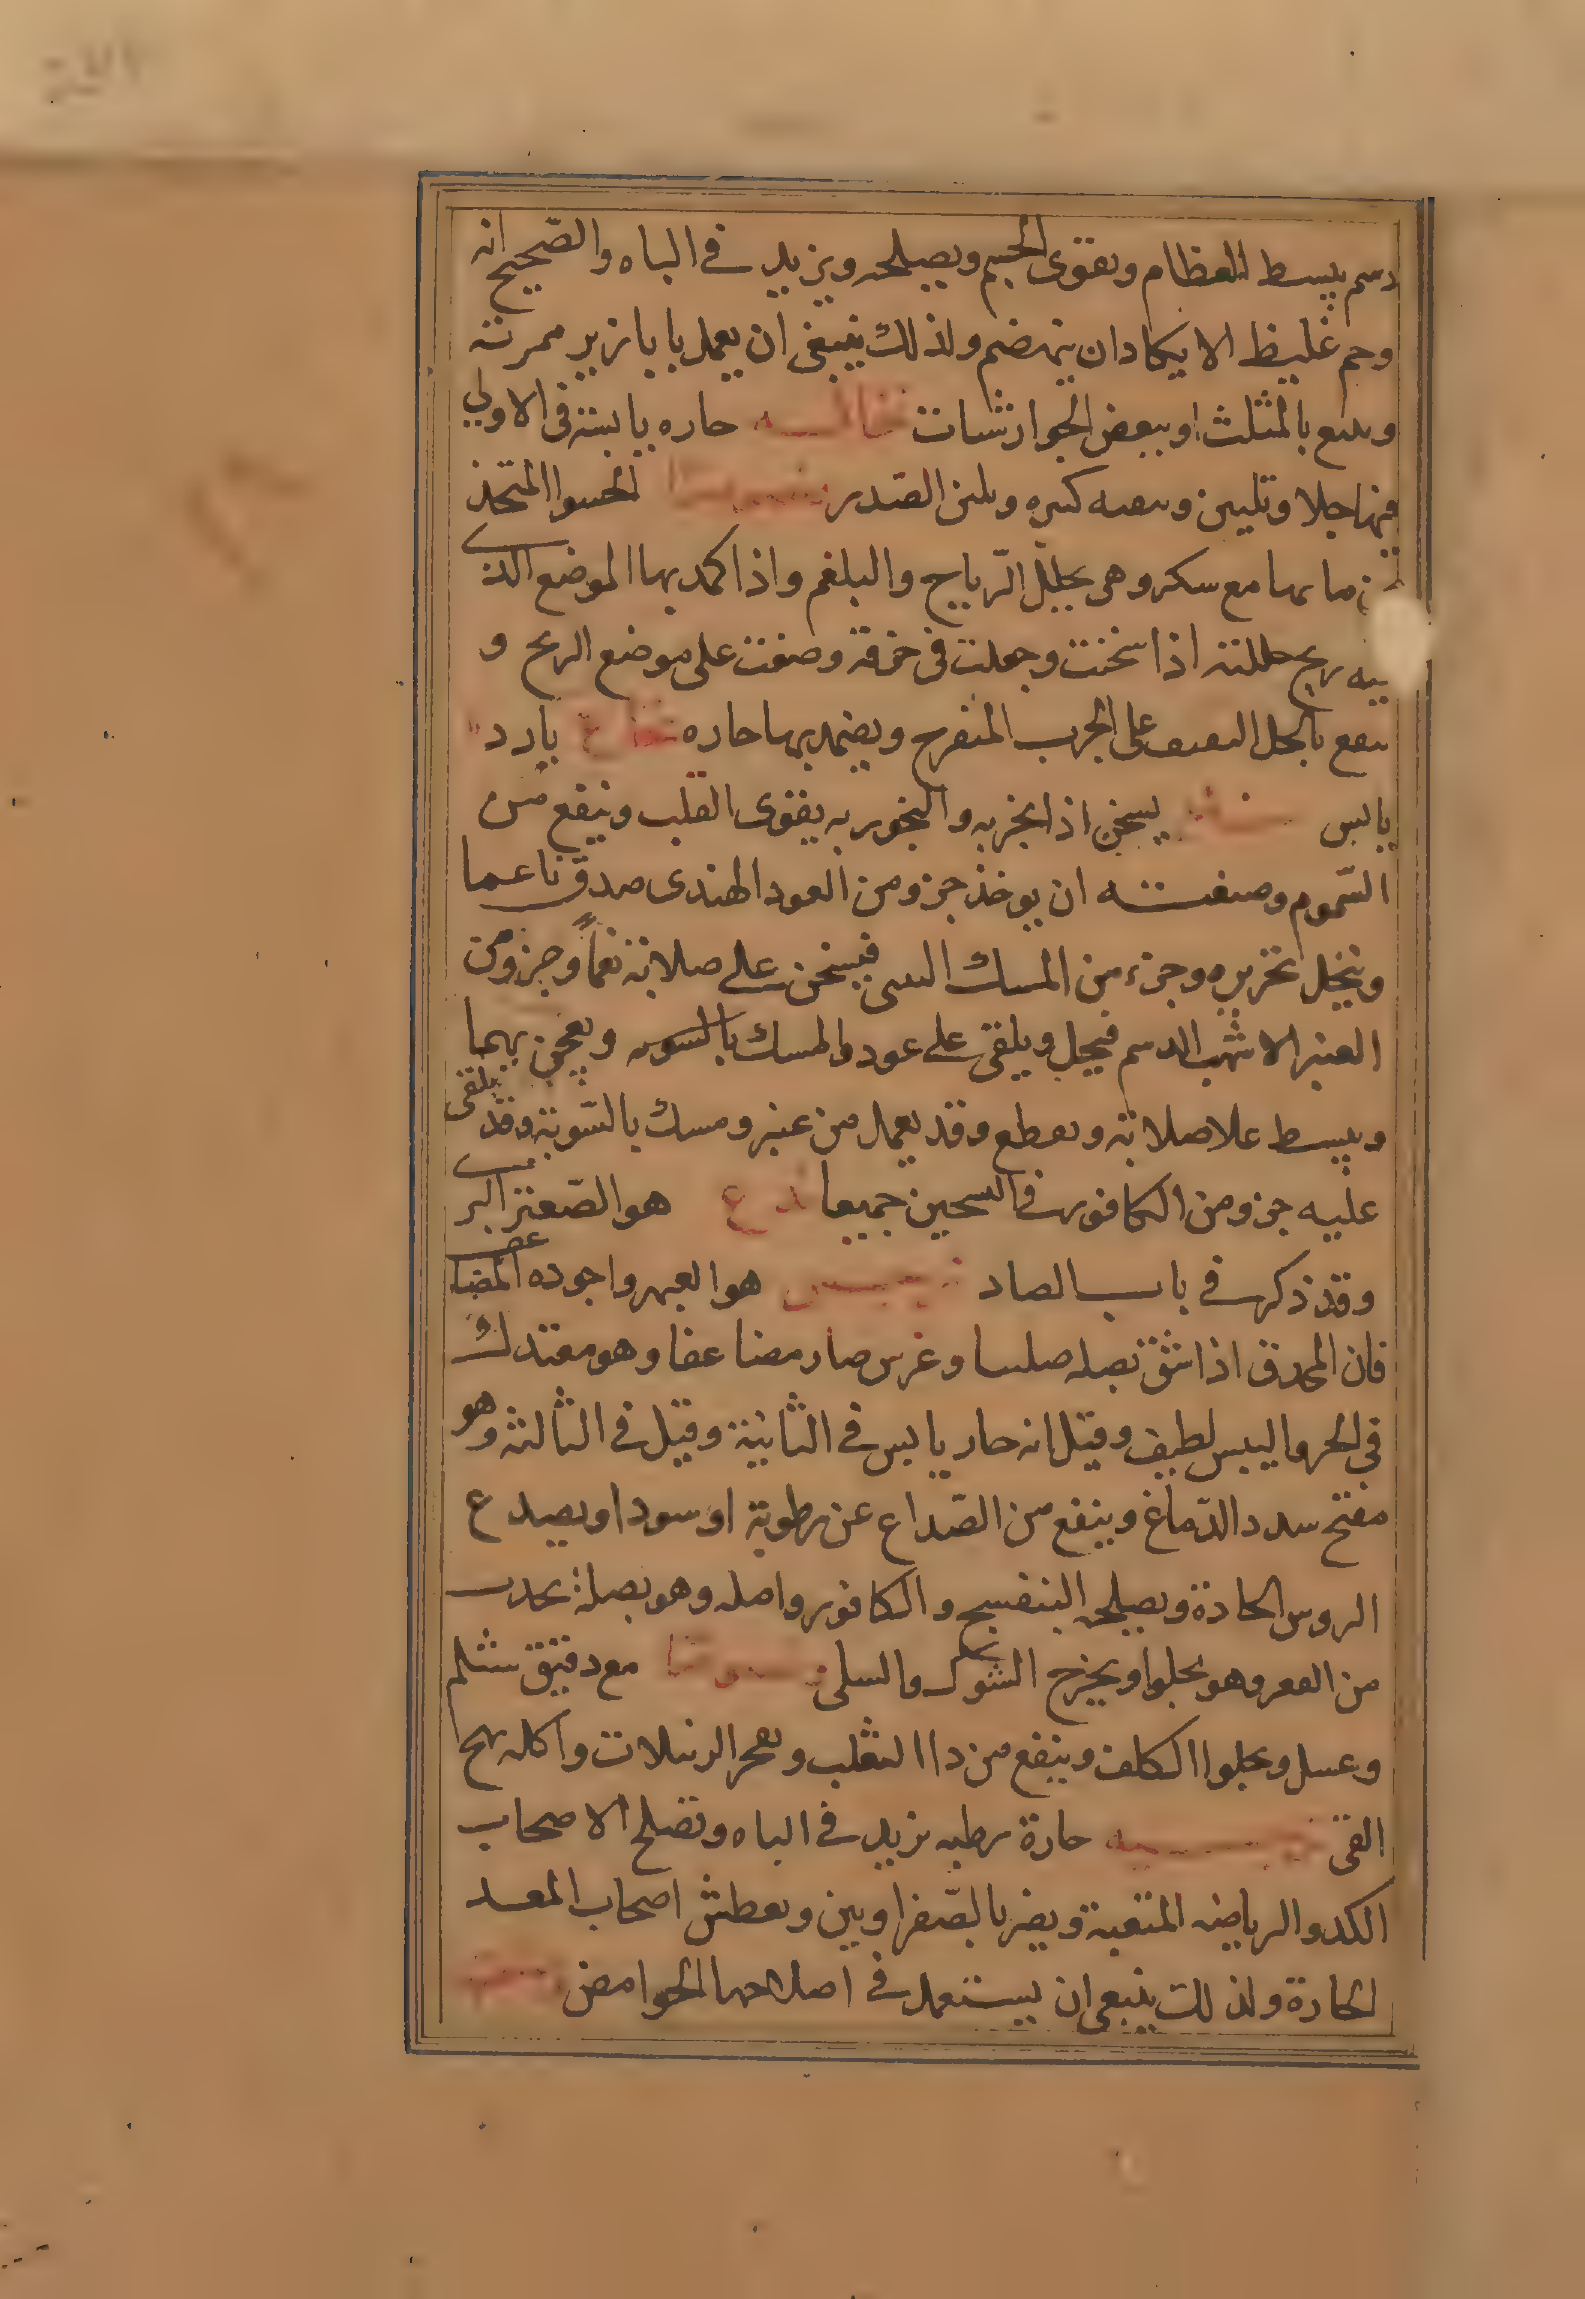 دسم يبسط العظام ويقوى الجسم ويصلحه ويزيد في الباه والصحيح انه
وحم غليظ الا يكاد ان ينهضم ولذلك ينبغى ان يعمل بابازير ممرته
وبلبع بالمثلث او ببعض الجوارشات نخاله حاره يابسة فى الاولي
فيها جلا وتليين وسعه كسره وبلين الصدر لحسوا المتخذ
من مايها مع سكر وهى يحلل الرياح والبلغم واذا كمد بها الموضع الذى
فيه ريح حللته اذا سخنت وجعلت فى خرقة وضعت على موضع الريح و
ينفع بالخل الثقيف على الجرب المتقرح ويضمد بها حاره نخاع بارد
يابس يسخن اذا بخر به والبخور به يقوى القلب وينفع من
السموم وصنعته ان يوخذ جزو من العود الهندى صدق ناعما
وينخل بحريره وجزء من المسك السى فيسخن على صلابة نعما وجزو من
العنبر الاشهب الدسم فيحل ويلقى على عود والمسك بالسوىه ويعجن بهما
ويبسط علا صلابة ويقطع وقد يعمل من عنبر ومسك بالسوية وقد يلقى
عليه جزو من الكافور فى السحين جميعا هو الصعتر البرى
وقد ذكر في باب الصاد نرجس هو العبهر واجوده المضاعف
فان المحدق اذا شق بصله صلسا وغرس صار مضاعفا وهو معتدل
في الحر واليبس لطيف وقيل انه حار يابس في الثانية وقيل في الثالثه وهو
مفتح سدد الدماغ وينفع من الصداع عن رطوبة او سودا ويصدع
الروس الحادة ويصلحه البنفسج والكافور واصله وهو بصلة يجدب
من القعر وهو يجلوا ويخرج الشوك والسلى مع دقيق شيلم
وعسل ويجلوا الكلف وينفع من داالثعلب ويفجر الدبيلات واكله يهيج
القى حارة رطبه يزيد في الباه ويصلح الاصحاب
الكد والرياضه المتعبة ويضر بالصفراويين ويعطش اصحاب المعد
الحارة ولذلك ينبغى ان يستعمل في اصلاحها الحوامض